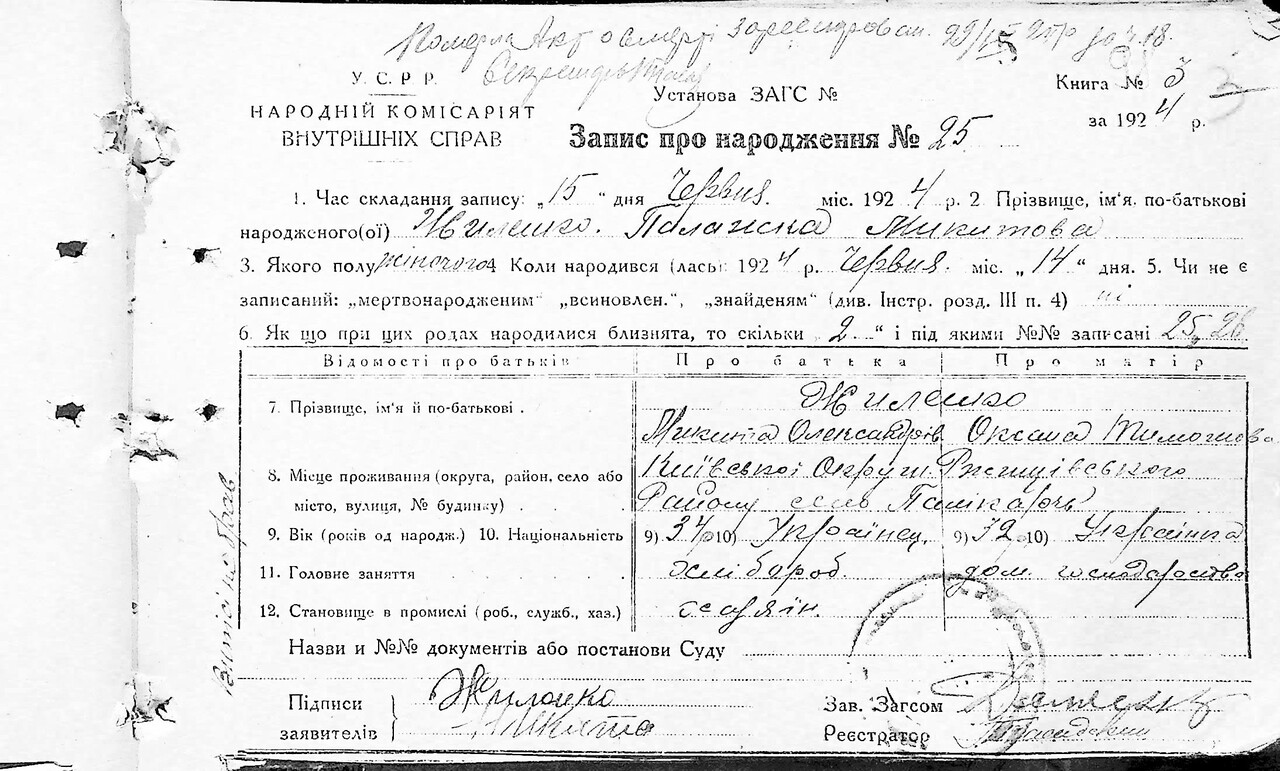 Померла Акт о смерті зареєстрован. 29/
У. С. Р. Р.
НАРОДНІЙ КОМІСАРІЯТ
ВНУТРІШНІХ СПРАВ
Установа ЗАГС №
Книга № 3
за 1924 р.
Запис про народження № 25
1. Час складання запису: „15“ дня Червня міс. 1924 р. 2 Прізвище, ім'я, по-батькові
народженого(ої) Жиленко. Палажка Микитова
3. Якого полу жіночого 4 Коли народився (лась) 1924 р. Червня. міс. „14“ дня. 5. Чи не є
записаний: „мертвонародженим“ „всиновлен.“, „знайденям“ (див. Інстр. розд. III п. 4) ні
6 Як що при цих родах народилися близнята, то скільки „2“ і під якими №№ записані 25, 26
Відомості про батьків Про батька Про матір
7. Прізвище, ім'я й по-батькові . Жиленко
Микита Олександрів Оксана Тимошова
8. Місце проживання (округа, район, село або місто, вулиця, № будинку) . . Київської Округи. Ржищівського
Району село
9. Вік (років од народж.) 10. Національність 9) 34 р. 10) Українец. 9) 32 р. 10) Українка
11. Головне заняття . . . . . хлібороб. дом. господарство
12. Становище в промислі (роб., служб., хаз.) селян.
Назви и №№ документів або постанови Суду
Підписи
заявителів
Жиленко
Микита
Зав. Загсом
Реєстратор